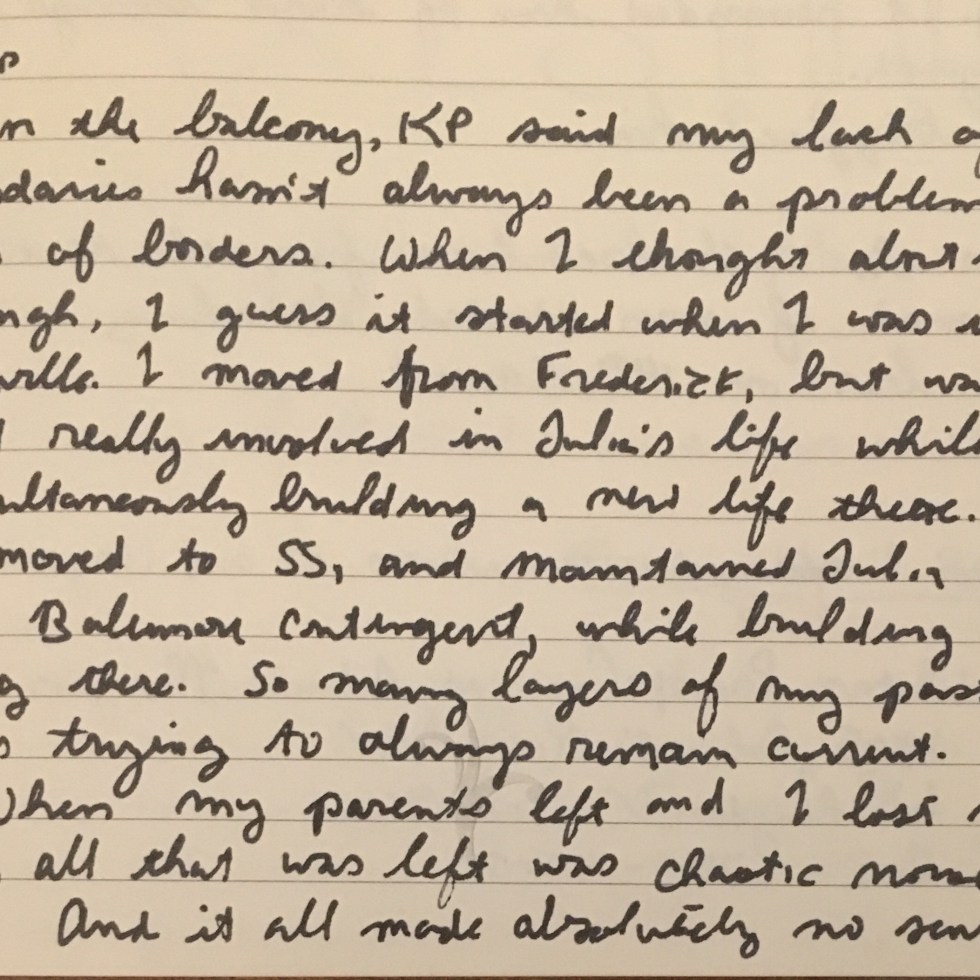 n the balcony, KP said my lack o
daries hasn't always been a problem
of borders. When I thought about
ugh, I guess it started when I was
ville. I moved from Frederick, but wa
really involved in Julia's life whil
ultaneously building a new life there.
moved to SS, and maintained Julia
Baltimore contingent, while building
g there. So many layers of my pas
trying to always remain current.
When my parents left and I lost
all that was left was chaotic
And it all made absolutely no sen